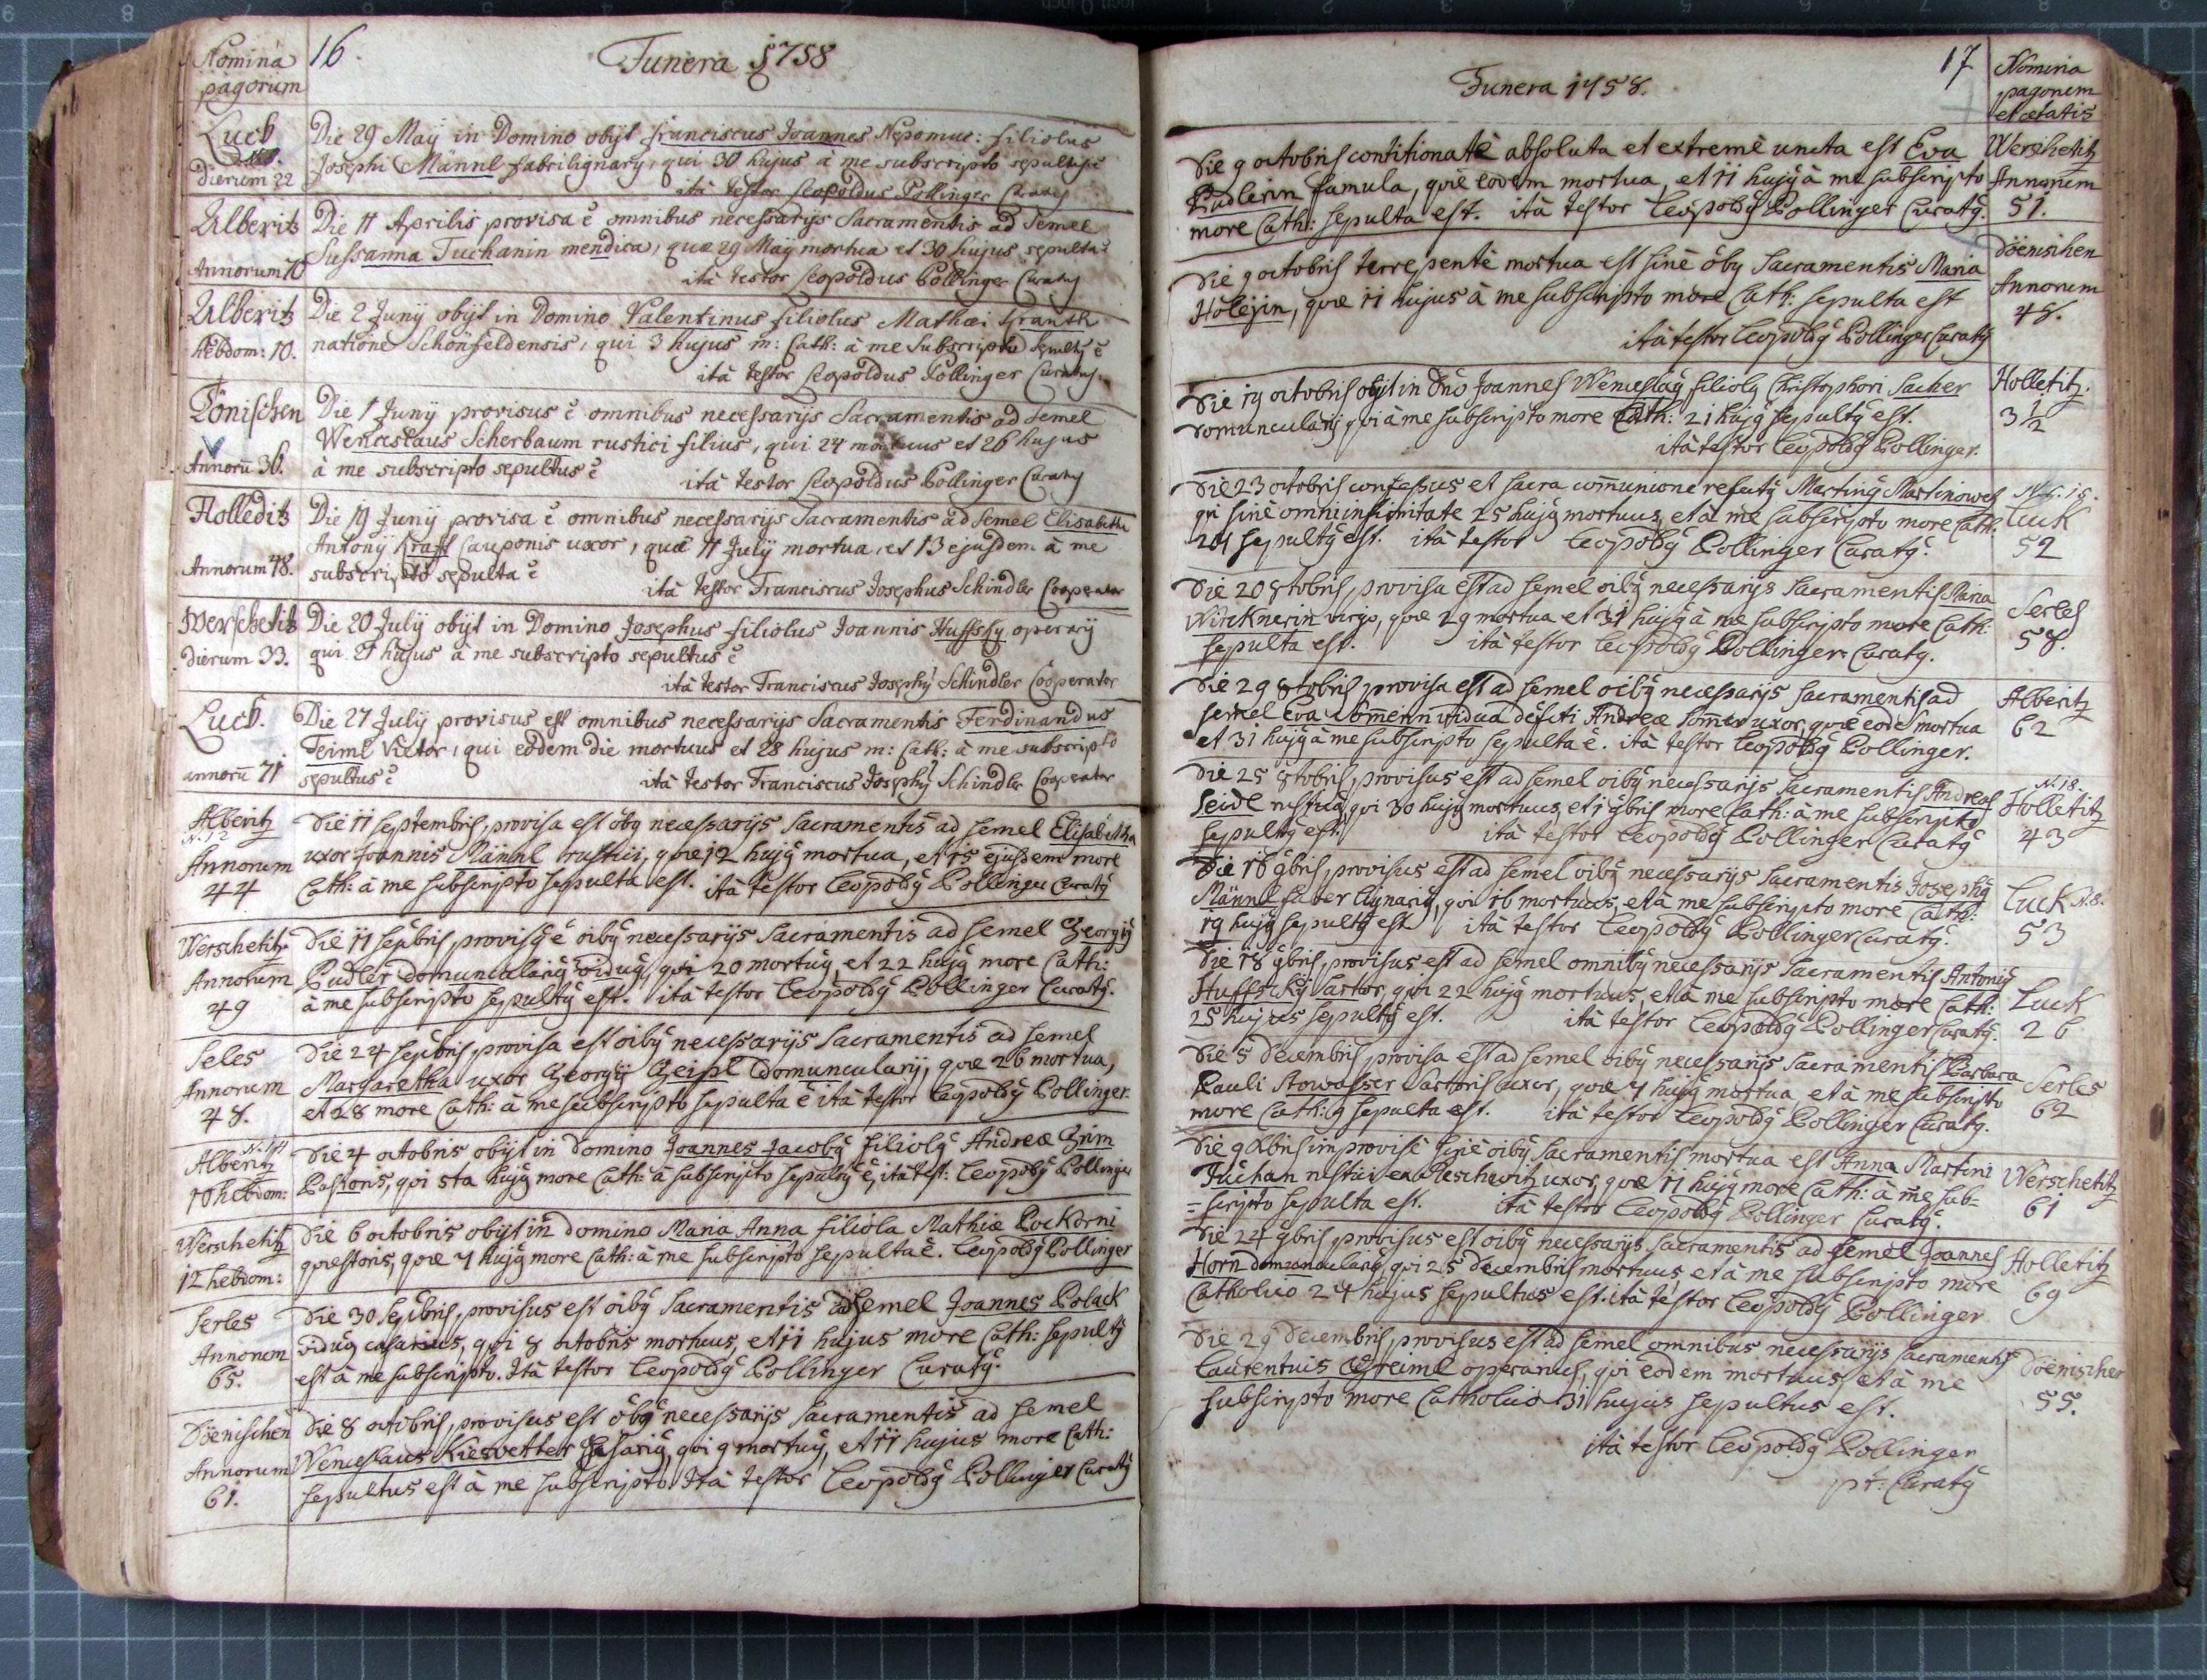 Nomina
pagorum
16.
Funera 1758
Luck
Dierum 22
Die 29 Maÿ in Domino obÿt Franciscus Joannes Nepomuc: filiolus
Josephi Männl fabri lignarÿ, qui 30 hujus à me subscripto sepultus ē
ità testor Leopoldus Pollinger Curatus
Alberitz
Annorum 70
Die 11 Aprilis provisa ē omnibus necessarÿs Sacramentis ad semel
Sussanna Tuchanin mendica, quæ 29 Maÿ mortua et 30 hujus sepulta ē
ità testor Leopoldus Pollinger Curatus
Alberitz
Hebdom: 10.
Die 2 Junÿ obÿt in Domino Valentinus filiolus Mathæi
natione Schönfeldensis, qui 3 hujus m: Cath: à me subscripto sepultus ē
ità testor Leopoldus Pollinger Curatus
Tönischen
Annorū 36.
Die 1 Junÿ provisus ē omnibus necessarÿs Sacramentis ad semel
Wenceslaus Scherbaum rustici filius, qui 24 mortuus et 26 hujus
à me subscripto sepultus ē
ità testor Leopoldus Pollinger Curatus
Holleditz
Annorum 48.
Die 19 Junÿ provisa ē omnibus necessarÿs Sacramentis ad semel Elisabetha
Antonÿ Krafft Cauponis uxor, quæ 11 Julÿ mortua, et 13 ejusdem à me
subscripto sepulta ē
ità testor Franciscus Josephus Schindler Cooperator
Werschetitz
Dierum 33.
Die 20 Julÿ obÿt in Domino Josephus filiolus Joannis Huffsky operarÿ
qui 21 hujus à me subscripto sepultus ē
ità testor Franciscus Josephÿ Schindler Cooperator
Luck.
annorū 71
Die 27 Julÿ provisus est omnibus necessarÿs Sacramentis Ferdinandus
Feiml Victor, qui eodem die mortuus et 28 hujus m: Cath: à me subscripto
sepultus ē
ità testor Franciscus Josephÿ Schindler Cooperator
Alberitz
N. 12
Annorum
44
Die 11 septembris, provisa est oibq necessarÿs Sacramentis ad semel Elisabetha
uxor Joannis Männl rustici, quæ 12 hujq mortua, et 15 ejusdem more
Cath: à me subscripto sepulta est. ità testor Leopoldq Pollinger Curatq
Werschetitz
Annorum
49
Die 11 sepbris, provisq ē oibq necessarÿs Sacramentis ad semel Georgiq
Pudler domuncularius viduq, qui 20 mortuq, et 22 hujq more Cath:
à me subscripto sepultq est. ità testor Leopoldq Pollinger Curatq.
Seles
Annorum
48.
Die 24 sepbris, provisa est oibq necessarÿs Sacramentis ad semel
Margaretha uxor Georgÿ Geipl domuncularÿ, quæ 26 mortua,
et 28 more Cath: à me subscripto sepulta ē ità testor Leopoldq Pollinger.
N. 14
Alberitz
10 hebdom:
Die 4 octobris obÿt in Domino Joannes Jacobq filiolq Andreæ Grim
Pastoris, qui 5ta hujq more Cath: à subscripto sepultq ē, ità test: Leopoldq Pollinger
Werschetitz
12 hebdom:
Die 6 octobris obÿt in Domino Maria Anna filiola Mathiæ Pockorni
quæstoris, quæ 7 hujq more Cath: à me subscripto sepulta ē. Leopoldq Pollinger
Serles
Annorum
65.
Die 30 sepbris, provisus est oibq Sacramentis ad semel Joannes Polack
viduq casarius, qui 8 octobris mortuus, et 11 hujus more Cath: sepultq
est à me subscripto. Ità testor Leopoldq Pollinger Curatq.
Döenischen
Annorum
61.
Die 8 octobris, provisus est oibq necessarÿs Sacramentis ad semel
Wenceslaus Kiesvetter casariq, qui 9 mortuq, et 11 hujus more Cath:
sepultus est à me subscripto. Ità testor Leopoldq Pollinger Curatq
17
Funera 1758.
Nomina
pagorum
et ætatis
Die 9 octobris contitionatè absoluta et extremè uncta est Eva
Pudlerin famula, quæ eodem mortua, et 11 hujq à me subscripto
more Cath: sepulta est. ità testor Leopoldq Pollinger Curatq.
Werschetitz
Annorum
51.
Die 9 octobris terrepentè mortua est sinè oibq Sacramentis Maria
Holejin, quæ 11 hujus à me subscripto more Cath: sepulta est
ità testor Leopoldq Pollinger Curatq
Döenischen
Annorum
48.
Die 19 octobris obÿt in Dno Joannes Wenceslaq filiolq Christophori Sacher
domuncularÿ qui à me subscripto more Cath: 21 hujq sepultq est.
ità testor Leopoldq Pollinger.
Holletitz.
3 1/2
Die 23 octobris confessus et sacra com̄unione refectq Martinq Martinowes
qui sinè omni infirmitate 25 hujq mortuus, et à me subscripto more Cath:
sepultq est. ità testor Leopoldq Pollinger Curatq.
N. 15.
Luck
52
Die 20 8tobris, provisa est ad semel oibq necessarÿs Sacramentis Maria
Wircknerin virgo, quæ 29 mortua et 31 hujq à me subscripto more Cath:
sepulta est. ità testor Leopoldq Pollinger Curatq.
Serles
58.
Die 29 8tobris, provisa est ad semel oibq necessarÿs Sacramentis ad
semel Eva Som̄erin vidua defūcti Andreæ Som̄er uxor, quæ eodē mortua
et 31 hujq à me subscripto sepulta ē. ità testor Leopoldq Pollinger.
Alberitz
62
Die 25 8tobris, provisus est ad semel oibq necessarÿs Sacramentis Andreas
Seidl rusticq, qui 30 hujq mortuus, et 1 9bris more Cath: à me subscripto
sepultq est. ità testor Leopoldq Pollinger Curatq
N. 18.
Holletitz
43
Die 16 9bris, provisus est ad semel oibq necessarÿs Sacramentis Josephq
Männl faber lignariq, qui 16 mortuus, et à me subscripto more Cath:
19 hujq sepultq est ità testor Leopoldq Pollinger Curatq.
Luck N. 8.
53
Die 18 9bris, provisus est ad semel omnibq necessarÿs Sacramentis Antoniq
Huffsky Sartor, qui 22 hujq mortuus, et à me subscripto more Cath:
25 hujus sepultq est. ità testor Leopoldq Pollinger Curatq.
Luck
26
Die 5 Decembris, provisa est ad semel oibq necessarÿs Sacramentis Barbara
Pauli Stowasser Sartoris uxor, quæ 7 hujq mortua, et à me subscripto
more Cath: 9 sepulta est. ità testor Leopoldq Pollinger Curatq.
Serles
62
Die 9 Xbris improvisè sinè oibq Sacramentis mortua est Anna Martini
Tuchan rustici ex Reschwitz uxor, quæ 11 hujq more Cath: à me sub-
=scripto sepulta est. ità testor Leopoldq Pollinger Curatq.
Werschetitz
61
Die 24 9bris, provisus est oibq necessarÿs Sacramentis ad semel Joannes
Horn domuncularius, qui 25 Decembris mortuus, et à me subscripto more
Catholico 27 hujus sepultus est. ità testor Leopoldq Pollinger
Holletitz
69
Die 29 Decembris, provisus est ad semel omnibus necessarÿs Sacramentis
Laurentius operarius, qui eodem mortuus, et à me
subscripto more Catholico 31 hujus sepultus est.
ità testor Leopoldq Pollinger
pt: Curatq
Döenischen
55.